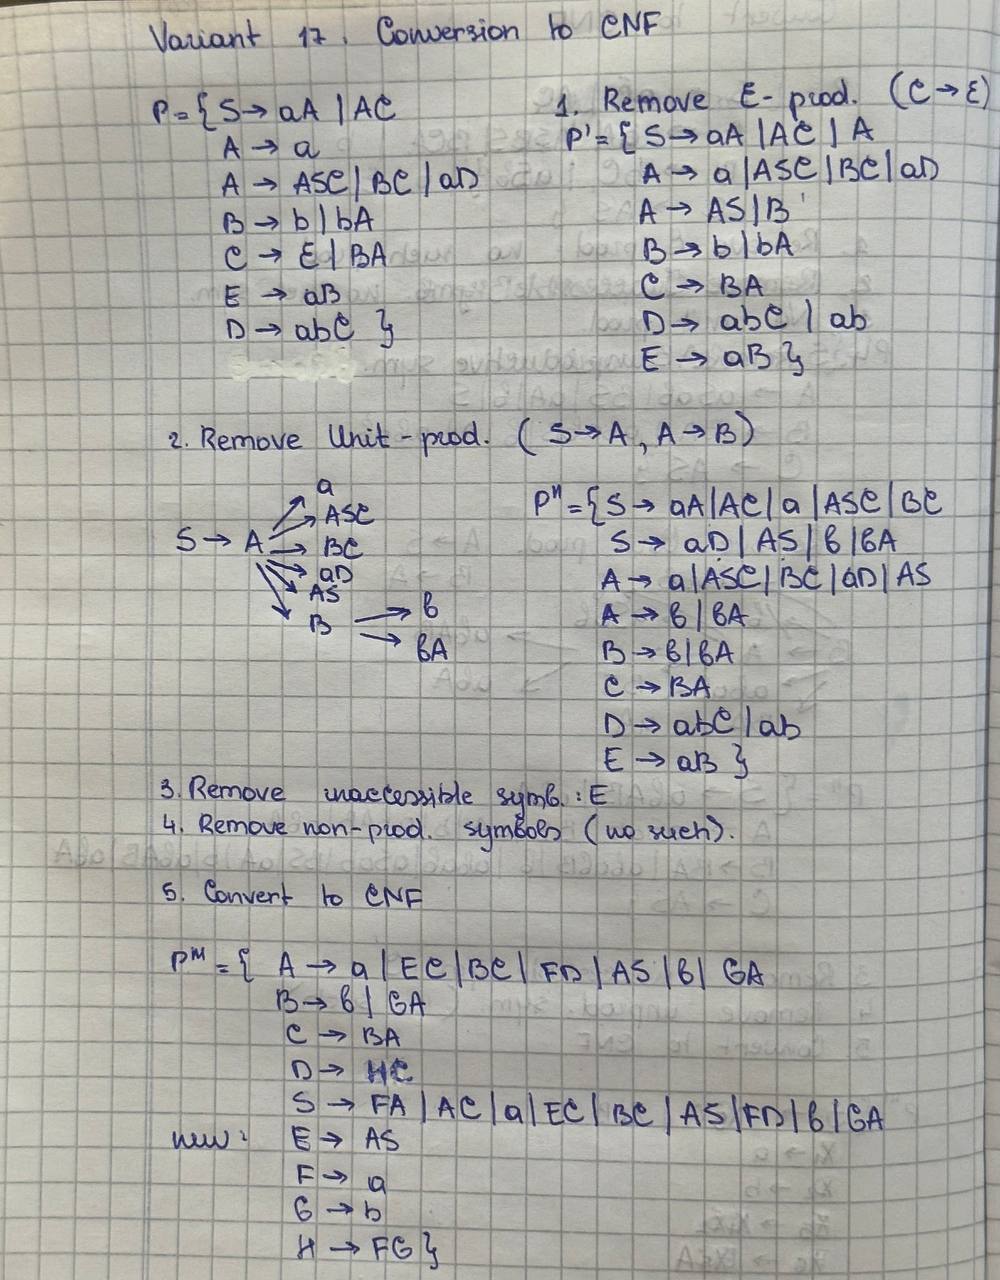 Variant 17. Conversion to CNF
P={ S→ aA | AC
A → a
A → ASC | BC | aD
B → b | bA
C → Ɛ | BA
E → aB
D → abC }
1. Remove Ɛ-prod. (C→Ɛ)
P'={ S→ aA | AC | A
A → a | ASC | BC | aD
A → AS | B
B → b | bA
C → BA
D → abC | ab
E → aB }
2. Remove Unit-prod. ( S→A, A→B)
S → A
a
ASC
BC
aD
AS
B
b
bA
P"={ S→ aA | AC | a | ASC | BC
S → aD | AS | b | bA
A → a | ASC | BC | aD | AS
A → b | bA
B → b | bA
C → BA
D → abC | ab
E → aB }
3. Remove inaccessible symb. : E
4. Remove non-prod. symbols (no such).
5. Convert to CNF
P'''={ A → a | EC | BC | FD | AS | b | GA
B → b | GA
C → BA
D → HC
S → FA | AC | a | EC | BC | AS | FD | b | GA
new: E → AS
F → a
G → b
H → FG }